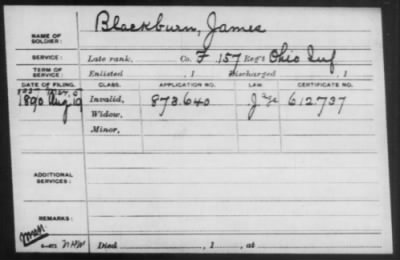 Blackburn, James
NAME OF
SOLDIER:
SERVICE: Late rank, Co. F. 157 Reg't Ohio Inf
TERM OF
SERVICE: Enlisted , 1 Discharged , 1
DATE OF FILING. CLASS. APPLICATION NO. LAW. CERTIFICATE NO.
1890 Aug 19 Invalid, 878.640 612737
Widow,
Minor,
ADDITIONAL
SERVICES:
REMARKS:
Died , 1 , at